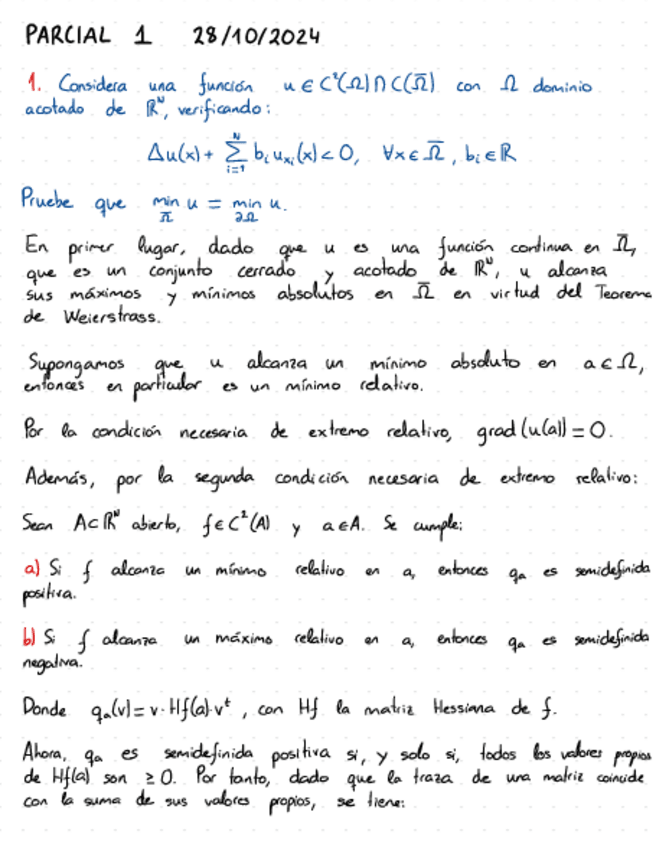 PARCIAL 1 28/10/2024
1. Considera una función u ∈ C²(Ω)∩C(Ω̅) con Ω dominio
acotado de ℝᴺ, verificando:
Δu(x) + ∑ᵢ₌₁ᴺ bᵢ uₓᵢ(x) < 0, ∀x ∈ Ω̅, bᵢ ∈ ℝ
Pruebe que min_Ω̅ u = min_∂Ω u.
En primer lugar, dado que u es una función continua en Ω̅,
que es un conjunto cerrado y acotado de ℝᴺ, u alcanza
sus máximos y mínimos absolutos en Ω̅ en virtud del Teorema
de Weierstrass.
Supongamos que u alcanza un mínimo absoluto en a ∈ Ω,
entonces en particular es un mínimo relativo.
Por la condición necesaria de extremo relativo, grad(u(a)) = 0.
Además, por la segunda condición necesaria de extremo relativo:
Sean A⊂ℝᴺ abierto, f∈C²(A) y a∈A. Se cumple:
a) Si f alcanza un mínimo relativo en a, entonces qₐ es semidefinida
positiva.
b) Si f alcanza un máximo relativo en a, entonces qₐ es semidefinida
negativa.
Donde qₐ(v) = v·Hf(a)·vᵗ, con Hf la matriz Hessiana de f.
Ahora, qₐ es semidefinida positiva si, y solo si, todos los valores propios
de Hf(a) son ≥ 0. Por tanto, dado que la traza de una matriz coincide
con la suma de sus valores propios, se tiene: